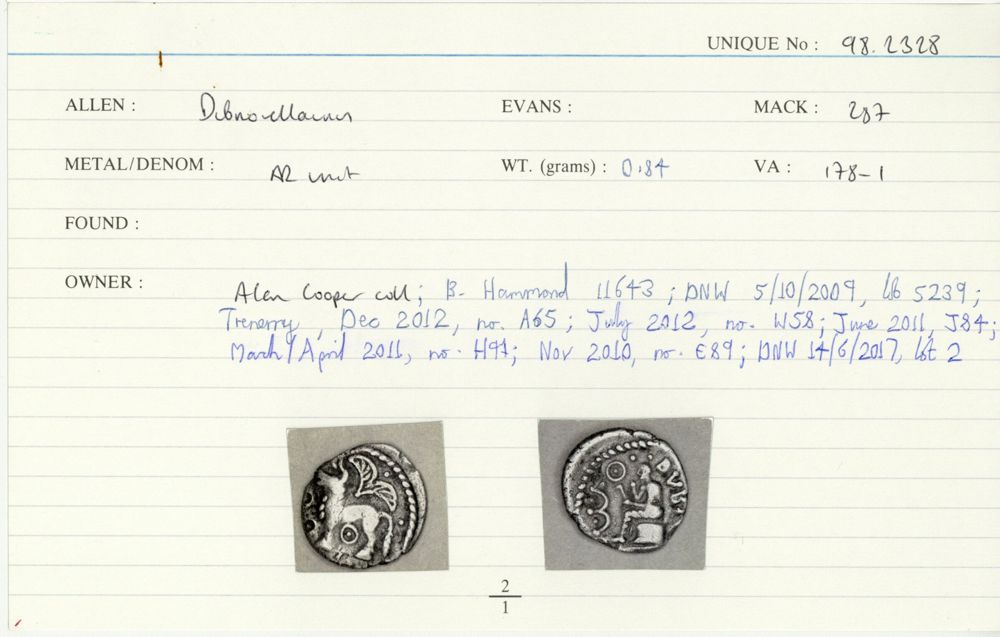 UNIQUE No : 98.2328
ALLEN : Dubnovellaunus EVANS : MACK : 287
METAL/DENOM : AR unit WT. (grams) : 0.84 VA : 178-1
FOUND :
OWNER : Alan Cooper coll; B. Hammond 11643; DNW 5/10/2009, lot 5239;
Trenerry, Dec 2012, no. A65; July 2012, no. W58; June 2011, J84;
March/April 2011, no. H91; Nov 2010, no. E89; DNW 14/6/2017, lot 2
DVB
2
1